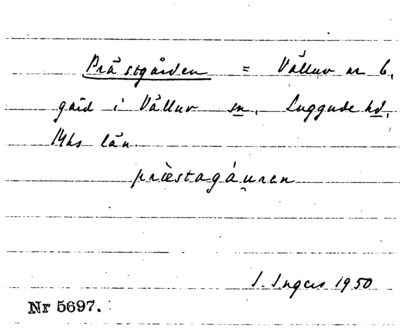 Prästgården = Vålluv nr 6,
gård i Vålluv sn, Luggude hd,
Mhs län
prièstagáuren
I. Ingers 1950
Nr 5697.